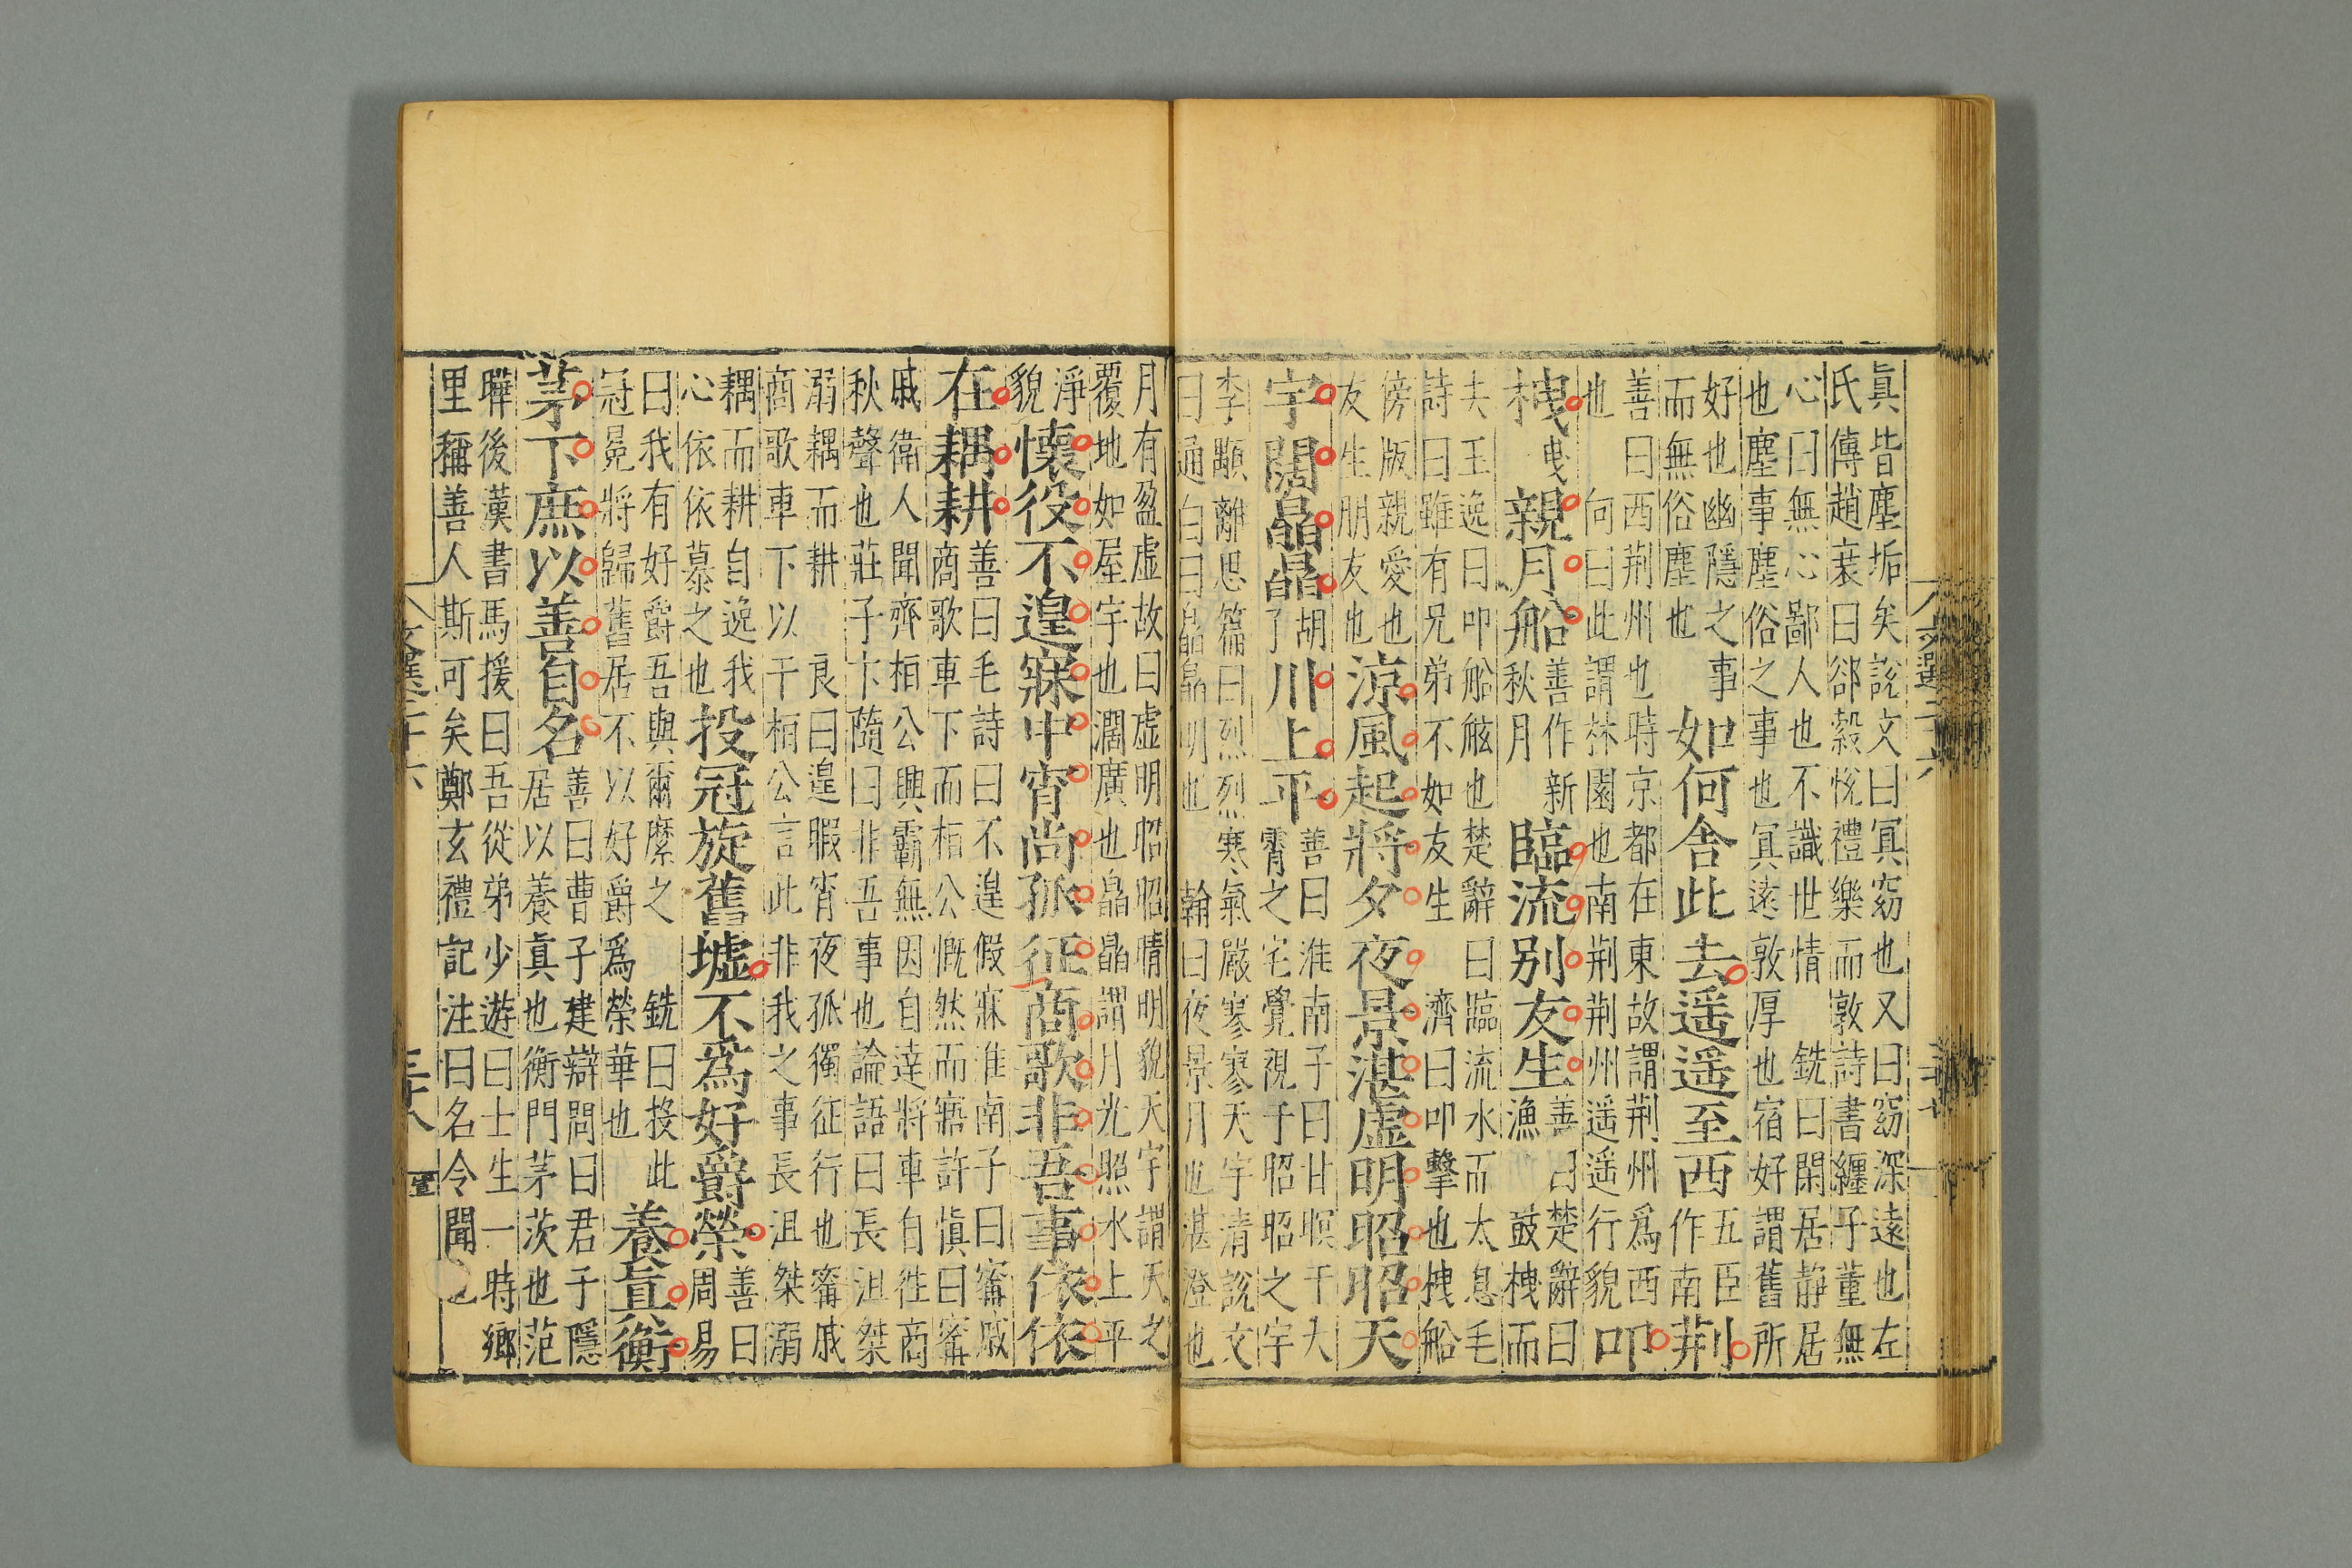 真皆塵垢矣說文曰冥窈也又曰窈深遠也左
氏傳趙衰曰郤縠悅禮樂而敦詩書纏子董無
心曰無心鄙人也不識世情 銑曰閑居静居
也塵事塵俗之事也冥遠敦厚也宿好謂舊所
好也幽隱之事
而無俗塵也
如何舍此去遥遥至西
五臣
作南
荆
善曰西荆州也時京都在東故謂荆州爲西
也 向曰此謂林園也南荆荆州遥遥行貌
叩
栧
曳
親月船
善作新
秋月
臨流别友生
善曰楚辭曰
漁 鼓栧而
夫王逸曰叩船舷也楚辭曰臨流水而太息毛
詩曰雖有兄弟不如友生 濟曰叩擊也拽船
傍版親愛也
友生朋友也
涼風起將夕夜景湛虚明昭昭天
宇闊皛皛
胡
了
川上平
善曰淮南子曰甘暝于大
霄之宅覺視于昭昭之宇
李顒離思篇曰烈烈寒氣嚴寥寥天宇清說文
曰通白曰皛皛明也 翰曰夜景月也湛澄也
月有盈虚故曰虚明昭昭晴明貌天宇謂天之
覆地如屋宇也濶廣也皛皛謂月光照水上平
淨
貌
懷役不遑寐中宵尚孤征商歌非吾事依依
在耦耕
善曰毛詩曰不遑假寐淮南子曰甯戚
商歌車下而桓公慨然而寤許慎曰甯
戚衛人聞齊桓公興霸無因自達將車自往商
秋聲也莊子卞隨曰非吾事也論語曰長沮桀
溺耦而耕 良曰遑暇宵夜孤獨征行也甯戚
商歌車下以干桓公言此非我之事長沮桀溺
耦而耕自逸我
心依依慕之也
投冠旋舊墟不爲好爵榮
善曰
周易
曰我有好爵吾與爾縻之 銑曰投此
冠冕將歸舊居不以好爵爲榮華也
養真衡
茅下庶以善自名
善曰曹子建辯問曰君子隱
居以養真也衡門茅茨也范
曄後漢書馬援曰吾從弟少遊曰士生一時鄉
里稱善人斯可矣鄭玄禮記注曰名令聞